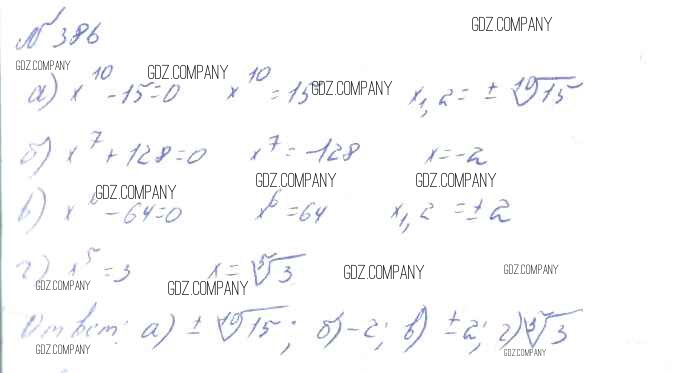 № 386
GDZ.COMPANY
GDZ.COMPANY
а) x¹⁰ - 15 = 0 x¹⁰ = 15 x₁,₂ = ± ¹⁰√15
GDZ.COMPANY
GDZ.COMPANY
б) x⁷ + 128 = 0 x⁷ = -128 x = -2
GDZ.COMPANY
GDZ.COMPANY
GDZ.COMPANY
в) x⁶ - 64 = 0 x⁶ = 64 x₁,₂ = ±2
г) x⁵ = 3 x = ⁵√3
GDZ.COMPANY
GDZ.COMPANY
GDZ.COMPANY
GDZ.COMPANY
Ответ: а) ± ¹⁰√15; б) -2; в) ±2; г) ⁵√3
GDZ.COMPANY
GDZ.COMPANY